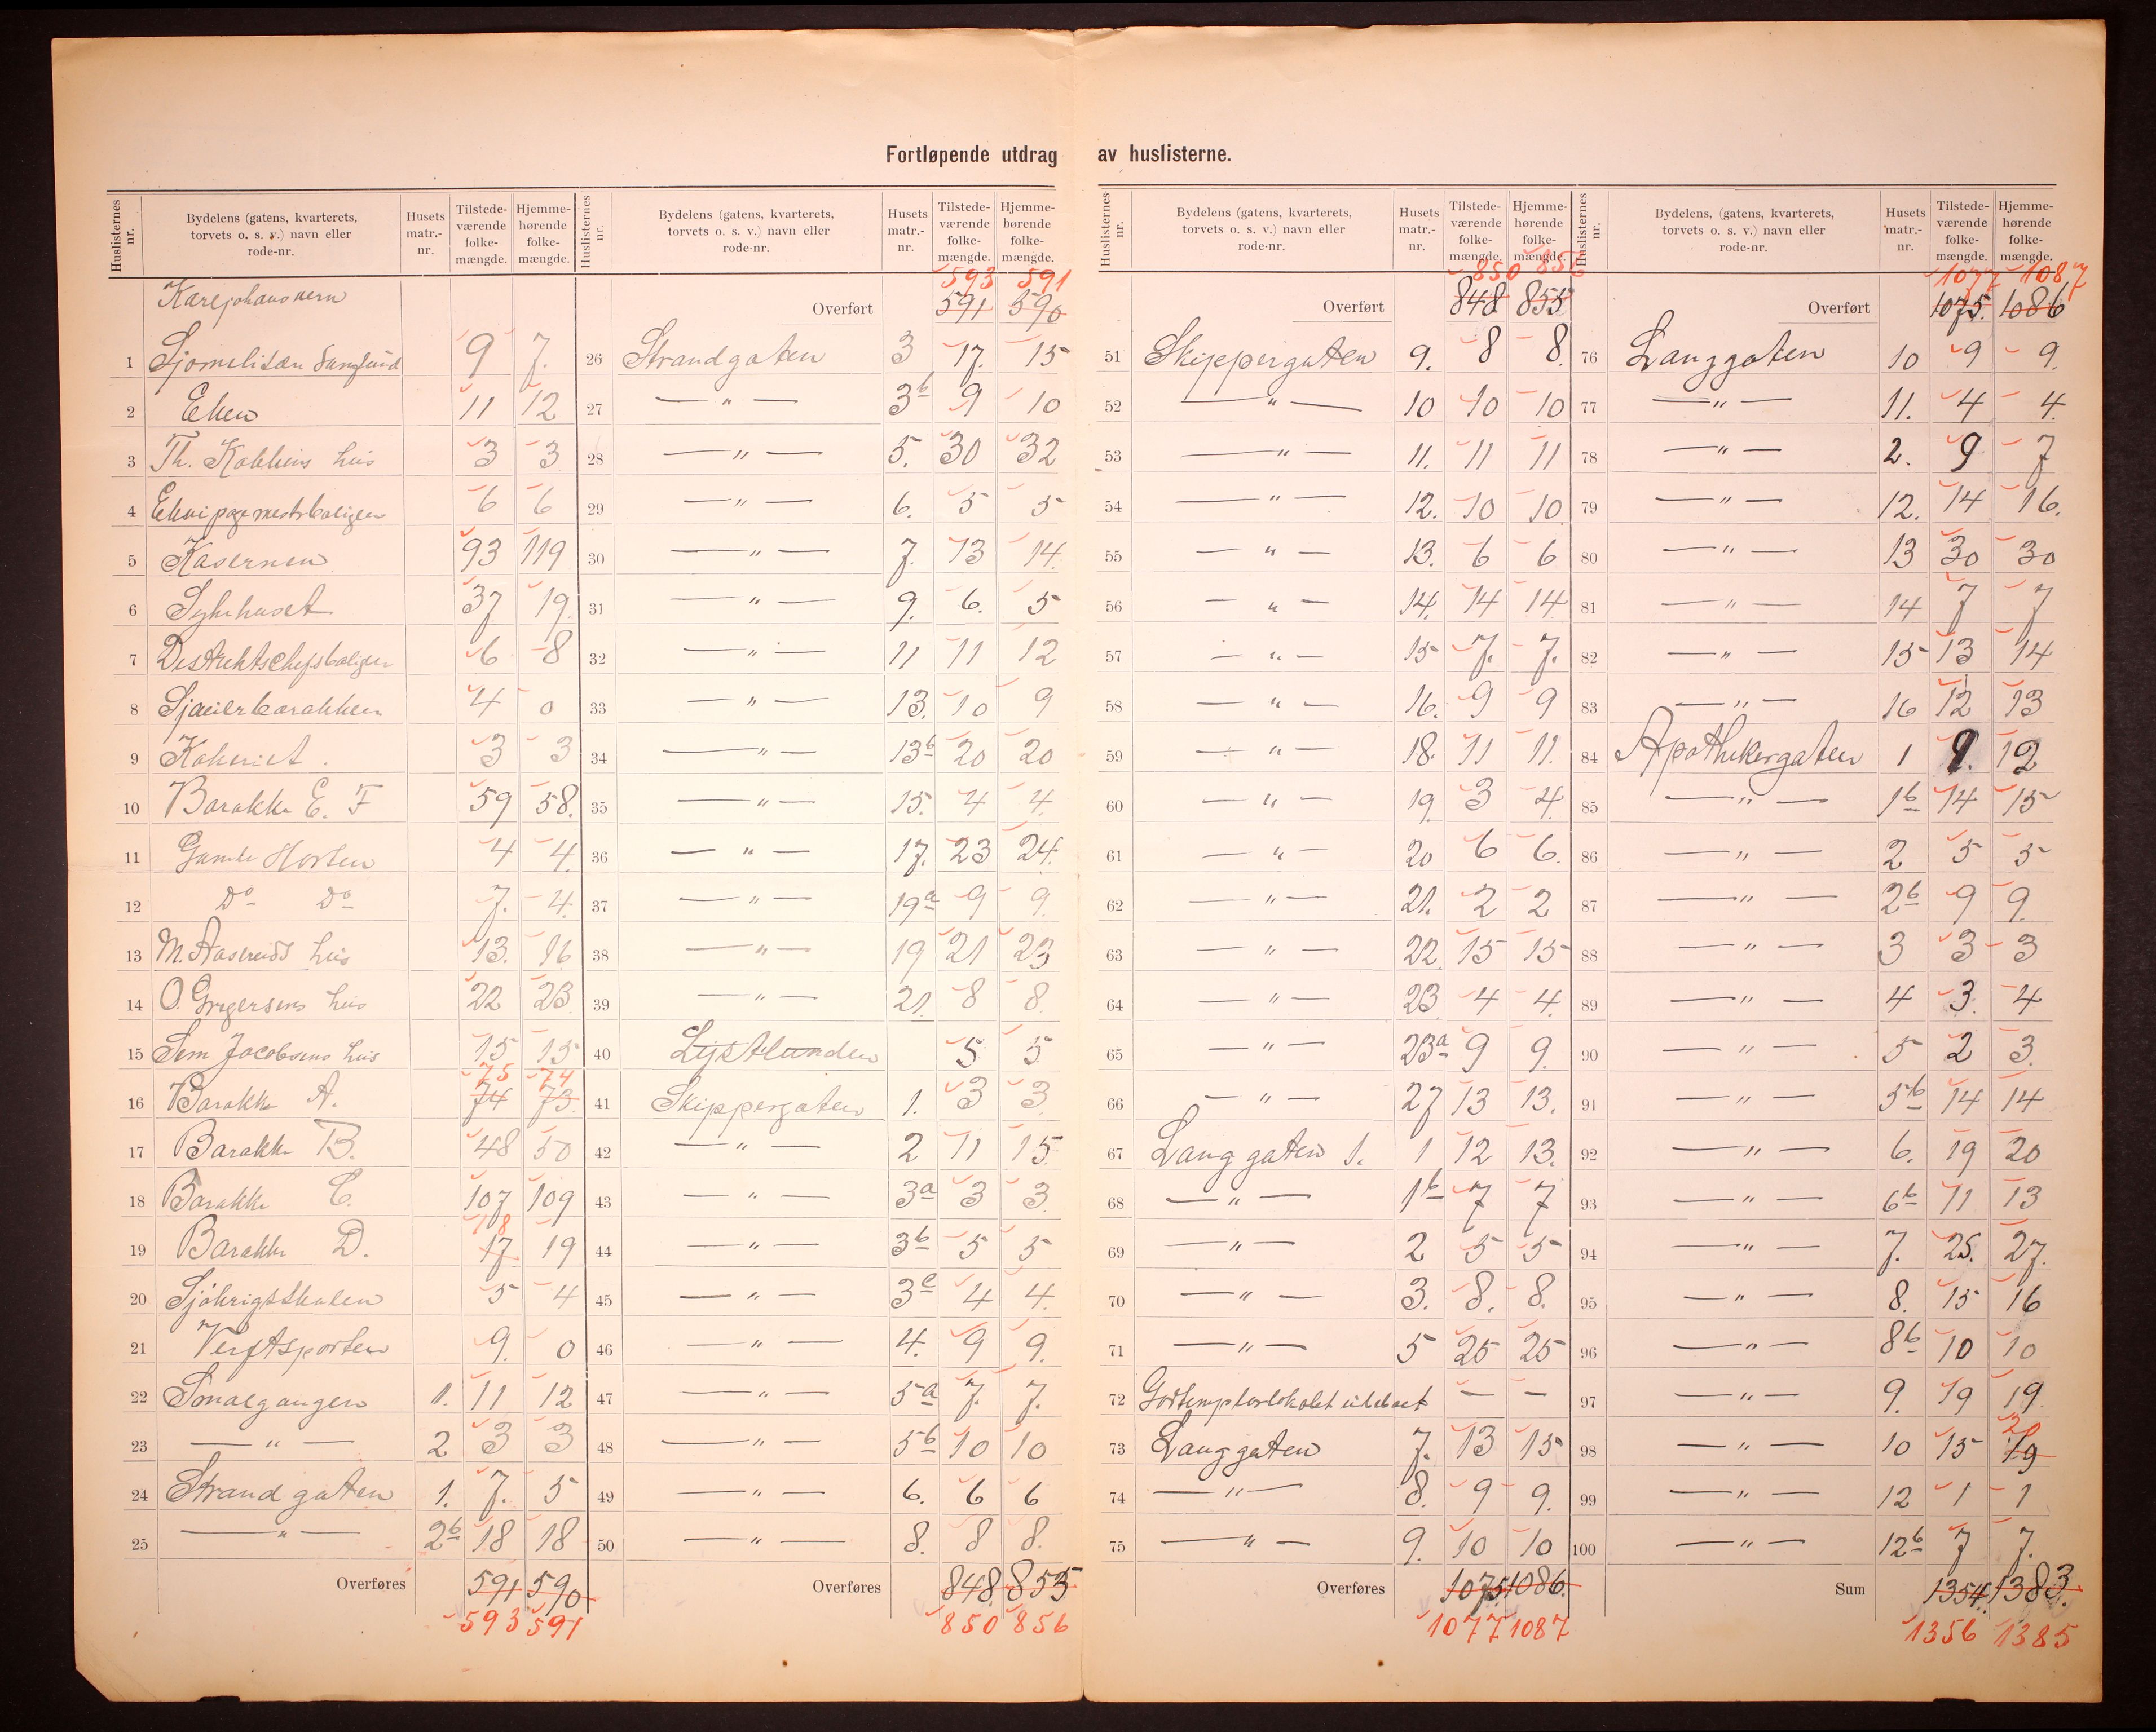 Fortløpende utdrag av huslisterne.
Huslisternes nr. | Bydelens (gatens, kvarterets, torvets o. s. v.) navn eller rode-nr. | Husets matr.-nr. | Tilstede-værende folke-mængde. | Hjemme-hørende folke-mængde.
Karljohansvern
1 Sjømilitær Samfund 9 7.
2 Eken 11 12
3 Th. Kobbens hus 3 3
4 Ekvipagemestrboligen 6 6
5 Kasernen 93 119
6 Sykehuset 37 19.
7 Destriktschefsboligen 6 8
8 Sjauerbarakken 4 0
9 Kokeriet. 3 3
10 Barakke E. F 59 58.
11 Gamle Horten 4 4.
12 Do Do 7. 4.
13 M. Aasruds hus 13. 16
14 O. Gregersens hus 22 23
15 Sem Jacobsens hus 15 15
75 74
16 Barakke A. 74 73.
17 Barakke B. 48 50
18 Barakke C. 107 109
18
19 Barakke D. 17 19
20 Sjökrigsskolen 5 4
21 Verftsporten 9. 0
22 Smalgangen 1. 11 12
23 — " — 2 3 3
24 Strandgaten 1. 7. 5
25 — " — 2b 18 18
Overføres 591 590
593 591
Huslisternes nr. | Bydelens (gatens, kvarterets, torvets o. s. v.) navn eller rode-nr. | Husets matr.-nr. | Tilstede-værende folke-mængde. | Hjemme-hørende folke-mængde.
593 591
Overført 591 590
26 Strandgaten 3 17. 15
27 — " — 3b 9 10
28 — " — 5. 30 32
29 — " — 6. 5 5
30 — " — 7. 13 14.
31 — " — 9. 6. 5
32 — " — 11 11 12
33 — " — 13. 10 9
34 — " — 13b 20 20
35 — " — 15. 4 4.
36 — " — 17. 23 24.
37 — " — 19a 9 9.
38 — " — 19 21 23
39 — " — 21. 8 8.
40 Lystlunden 5 5
41 Skippergaten 1. 3 3.
42 — " — 2 11 15
43 — " — 3a 3 3.
44 — " — 3b 5 5
45 — " — 3c 4 4.
46 — " — 4. 9 9.
47 — " — 5a 7. 7.
48 — " — 5b 10 10
49 — " — 6. 6 6
50 — " — 8. 8 8.
Overføres 848. 855
850 856
Huslisternes nr. | Bydelens (gatens, kvarterets, torvets o. s. v.) navn eller rode-nr. | Husets matr.-nr. | Tilstede-værende folke-mængde. | Hjemme-hørende folke-mængde.
850 856
Overført 848 855
51 Skippergaten 9. 8 8.
52 — " — 10 10 10
53 — " — 11. 11 11
54 — " — 12. 10 10.
55 — " — 13. 6 6
56 — " — 14. 14 14
57 — " — 15 7. 7.
58 — " — 16. 9 9
59 — " — 18. 11 11.
60 — " — 19. 3 4.
61 — " — 20 6 6.
62 — " — 21. 2 2
63 — " — 22. 15 15
64 — " — 23 4 4.
65 — " — 23a 9 9.
66 — " — 27 13 13.
67 Langgaten 1. 1 12 13.
68 — " — 1b 7 7
69 — " — 2 5 5
70 — " — 3. 8. 8.
71 — " — 5 25 25
72 Godtemplarlokalet ubeboet — —
73 Langgaten 7. 13 15
74 — " — 8. 9 9.
75 — " — 9. 10 10
Overføres 1075. 1086.
1077 1087
Huslisternes nr. | Bydelens, (gatens, kvarterets, torvets o. s. v.) navn eller rode-nr. | Husets matr.-nr. | Tilstede-værende folke-mængde. | Hjemme-hørende folke-mængde.
1077 1087
Overført 1075. 1086
76 Langgaten 10 9 9.
77 — " — 11. 4 4.
78 — " — 2. 9 7
79 — " — 12. 14 16.
80 — " — 13 30 30
81 — " — 14 7 7
82 — " — 15 13 14
83 — " — 16 12 13
84 Apothekergaten 1 9. 12
85 — " — 1b 14 15
86 — " — 2 5 5
87 — " — 2b 9 9.
88 — " — 3 3 3
89 — " — 4 3. 4
90 — " — 5 2 3.
91 — " — 5b 14 14
92 — " — 6. 19 20
93 — " — 6b 11 13
94 — " — 7. 25. 27.
95 — " — 8. 15 16
96 — " — 8b 10 10
97 — " — 9. 19 19.
20
98 — " — 10 15 19
99 — " — 12 1 1
100 — " — 12b 7 7.
Sum 1354. 1383.
1356 1385